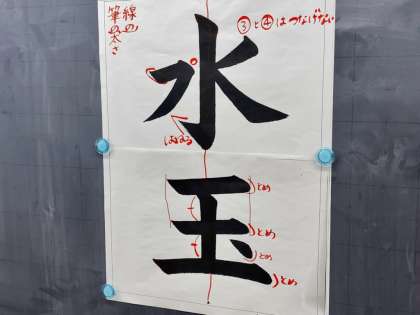 筆線の太さ
③と④はつなげない
水
はねる
玉
とめ
とめ
とめ
とめ